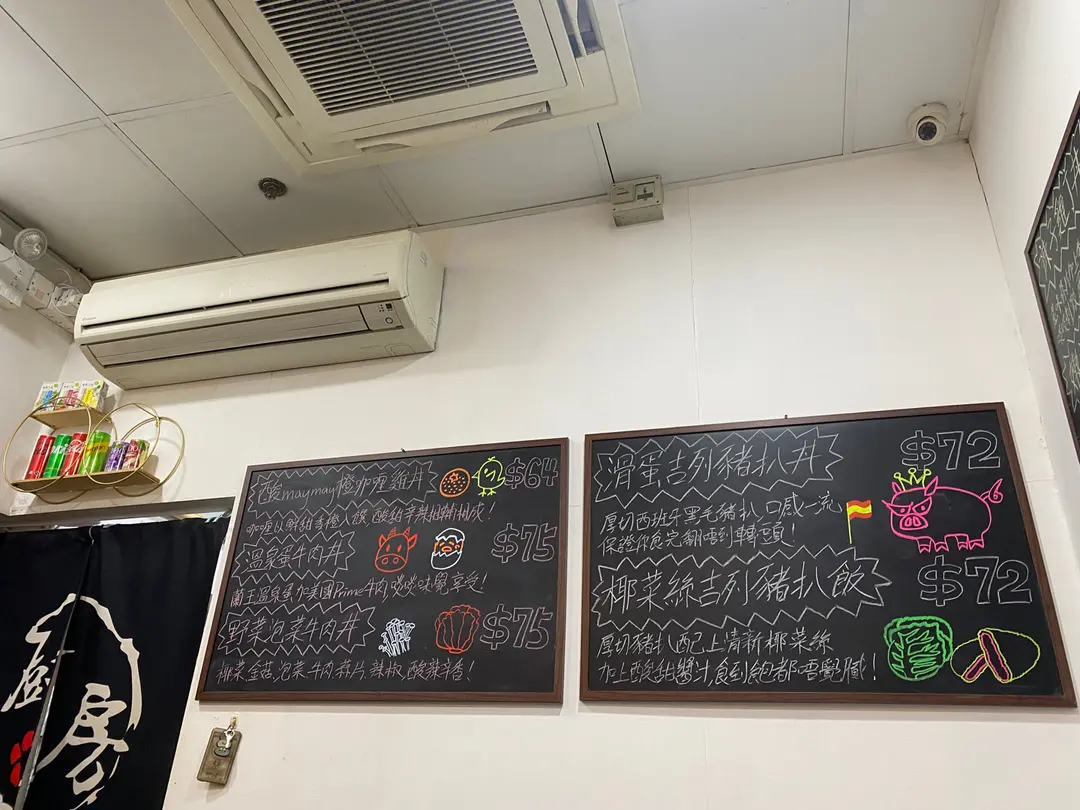 酸maymay橙咖喱雞丼
$64
咖喱以鮮甜香橙入饌,酸甜辛辣相輔相成!
溫泉蛋牛肉丼
$75
蘭王溫泉蛋加美國Prime牛肉,啖啖味覺享受!
野菜泡菜牛肉丼
$75
椰菜,金菇,泡菜,牛肉,蒜片,辣椒,酸辣辛香!
滑蛋吉列豬扒丼
$72
厚切西班牙黑毛豬扒,口感一流
保證你食完翻唔到轉頭!
椰菜絲吉列豬扒飯
$72
厚切豬扒配上清新椰菜絲
加上酸甜醬汁,食到飽都唔覺膩!
廚房